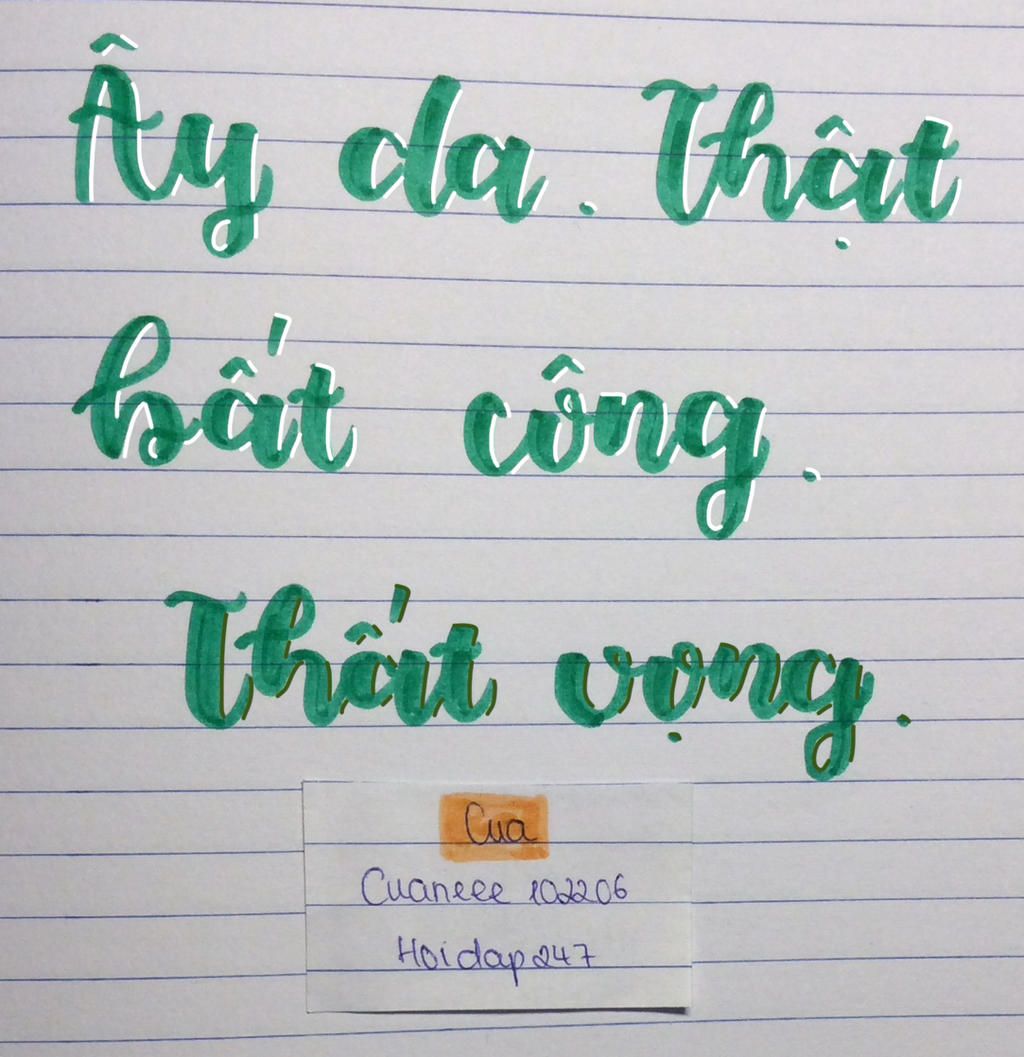 Ây da. Thật
bất công.
Thất vọng.
Cua
Cuaneee 102206
Hoidap247